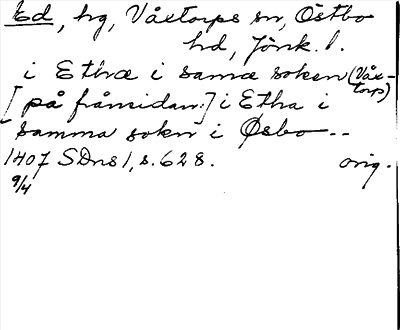 Ed, hg, Våxtorps sn, Östbo
hd, Jönk. l.
i Ethæ i samæ soken (Våx-
torp)
[på frånsidan:] i Etha i
samma sokn i Øsbo--
1407 SDns 1, s. 628. orig.
9/4